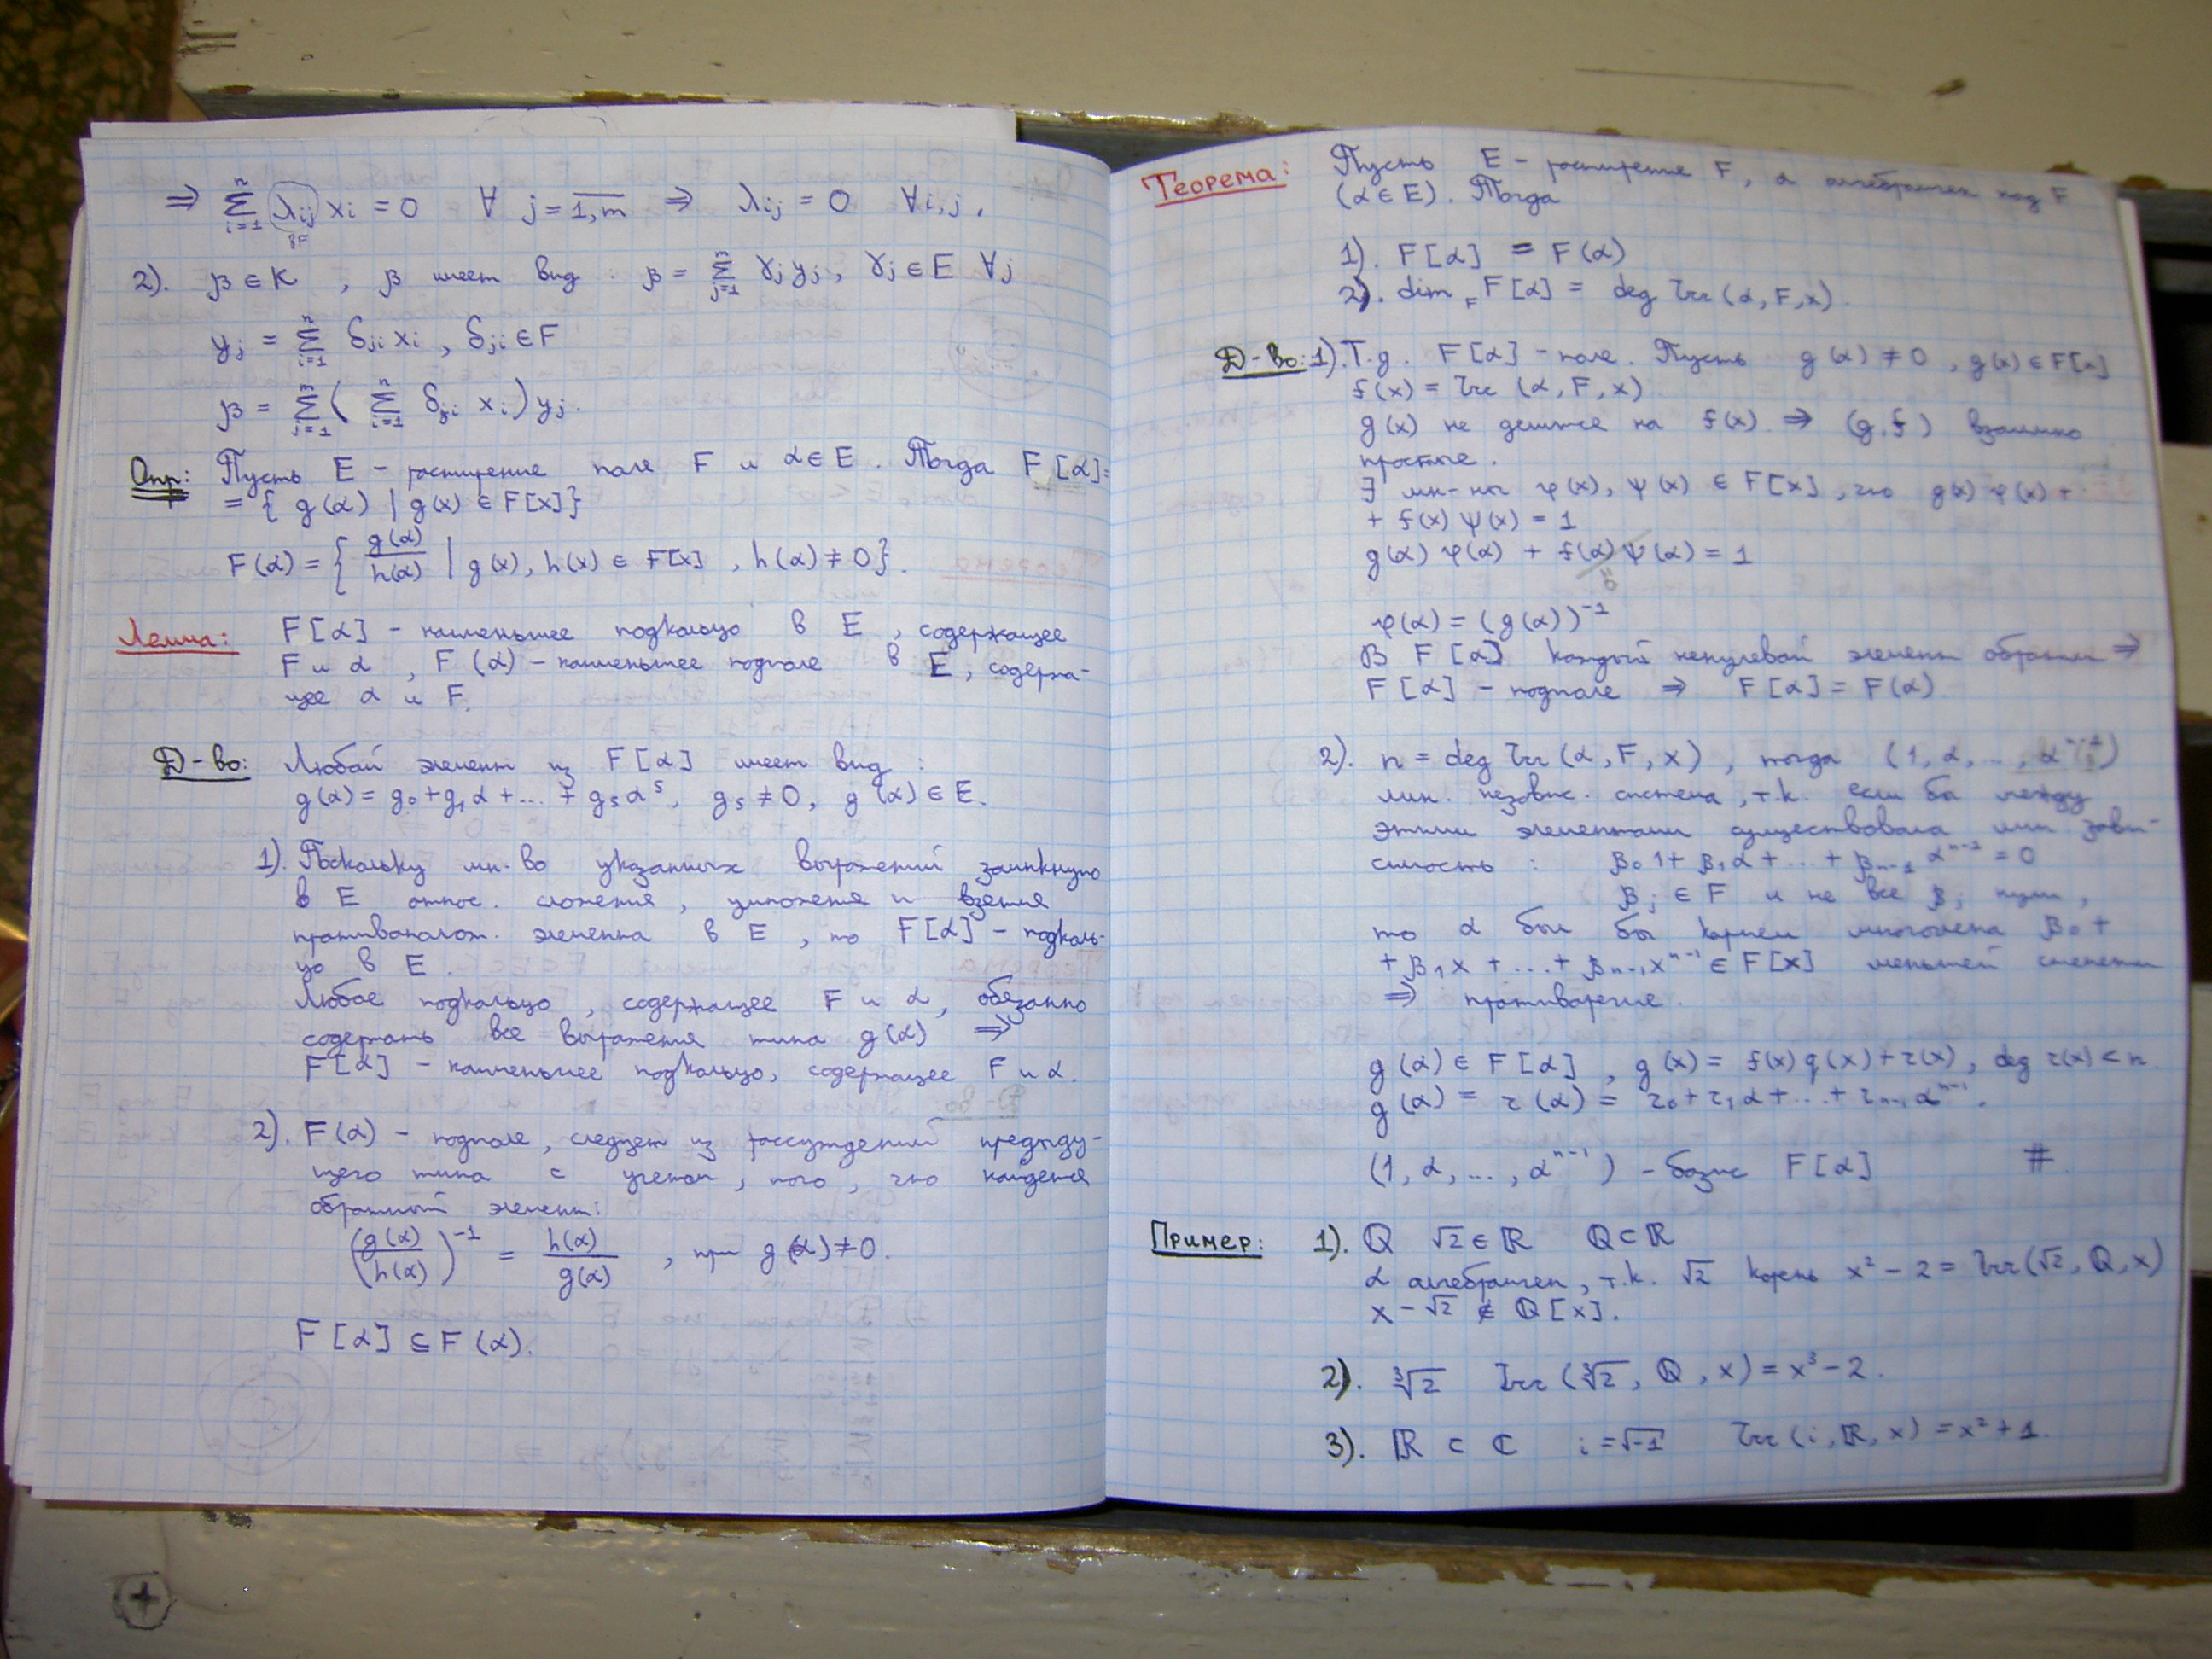 ⇒ ∑_{i=1}^{n} λ_{ij} x_i = 0 ∀ j = 1,m ⇒ λ_{ij} = 0 ∀i,j.
∈F
2). β ∈ K , β имеет вид : β = ∑_{j=1}^{m} γ_j y_j , γ_j ∈ E ∀j
y_j = ∑_{i=1}^{n} δ_{ji} x_i , δ_{ji} ∈ F
β = ∑_{j=1}^{m} ( ∑_{i=1}^{n} δ_{ji} x_i ) y_j.
Опр: Пусть E – расширение поле F и α ∈ E. Тогда F[α]=
= { g(α) | g(x) ∈ F[x]}
F(α) = { g(α)/h(α) | g(x), h(x) ∈ F[x] , h(α) ≠ 0}.
Лемма: F[α] – наименьшее подкольцо в E , содержащее
F и α , F(α) – наименьшее подполе в E, содержа-
щее α и F.
Д-во: Любой элемент из F[α] имеет вид :
g(α) = g₀ + g₁α + ... + g_s α^s, g_s ≠ 0, g(α) ∈ E.
1). Поскольку мн-во указанных выражений замкнуто
в E относ. сложения, умножения и взятия
противополож. элемента в E , то F[α] – подколь-
цо в E.
Любое подкольцо , содержащее F и α, обязано
содержать все выражения типа g(α) ⇒
F[α] – наименьшее подкольцо, содержащее F и α.
2). F(α) – подполе, следует из рассуждений предыду-
щего типа с учетом, того, что найдется
обратный элемент:
(g(α)/h(α))^{-1} = h(α)/g(α) , при g(α) ≠ 0.
F[α] ⊆ F(α).
Теорема: Пусть E – расширение F, α алгебраичен над F
(α ∈ E). Тогда
1). F[α] = F(α)
2). dim_F F[α] = deg Irr(α, F, x).
Д-во: 1). Т.д. F[α] – поле. Пусть g(α) ≠ 0 , g(x) ∈ F[x]
f(x) = Irr(α, F, x)
g(x) не делится на f(x) ⇒ (g, f) взаимно
простые.
∃ мн-ны φ(x), ψ(x) ∈ F[x] , что g(x) φ(x) +
+ f(x) ψ(x) = 1
g(α) φ(α) + f(α) ψ(α) = 1
0
φ(α) = (g(α))^{-1}
В F[α] каждый ненулевой элемент обратим ⇒
F[α] – подполе ⇒ F[α] = F(α)
2). n = deg Irr(α, F, x) , тогда (1, α, ..., α^{n-1})
лин. независ. система , т.к. если бы между
этими элементами существовала лин зави-
симость : β₀1 + β₁α + ... + β_{n-1} α^{n-1} = 0
β_j ∈ F и не все β_j нули ,
то α был бы корнем многочлена β₀ +
+ β₁x + ... + β_{n-1}x^{n-1} ∈ F[x] меньшей степени
⇒ противоречие.
g(α) ∈ F[α] , g(x) = f(x) q(x) + r(x) , deg r(x) < n
g(α) = r(α) = r₀ + r₁α + ... + r_{n-1} α^{n-1}.
(1, α, ..., α^{n-1}) – базис F[α] #
Пример: 1). ℚ √2 ∈ ℝ ℚ ⊂ ℝ
α алгебраичен, т.к. √2 корень x² – 2 = Irr(√2, ℚ, x)
x – √2 ∉ ℚ[x].
2). ∛2 Irr(∛2, ℚ, x) = x³ – 2.
3). ℝ ⊂ ℂ i = √-1 Irr(i, ℝ, x) = x² + 1.